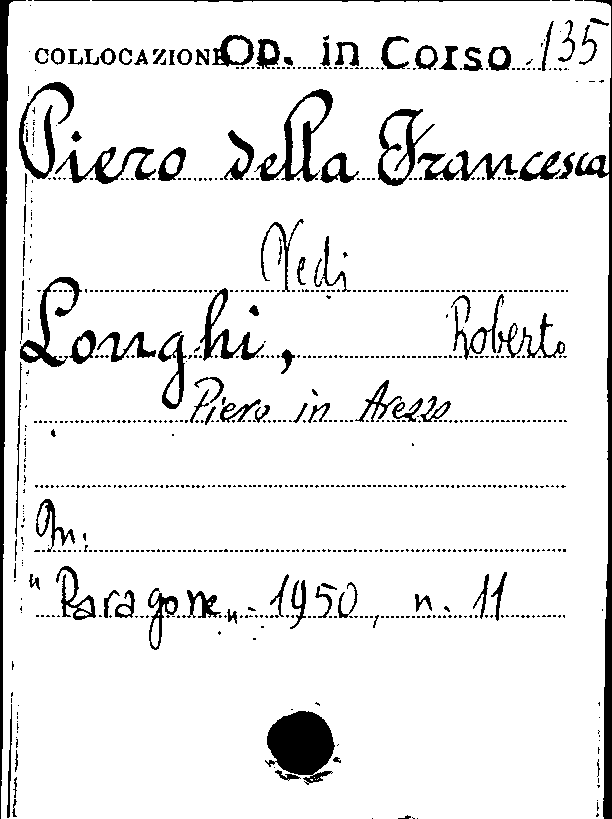 COLLOCAZIONE OP. in Corso 135
Piero della Francesca
Vedi
Longhi, Roberto
Piero in Arezzo
In:
"Paragone" - 1950, n. 11